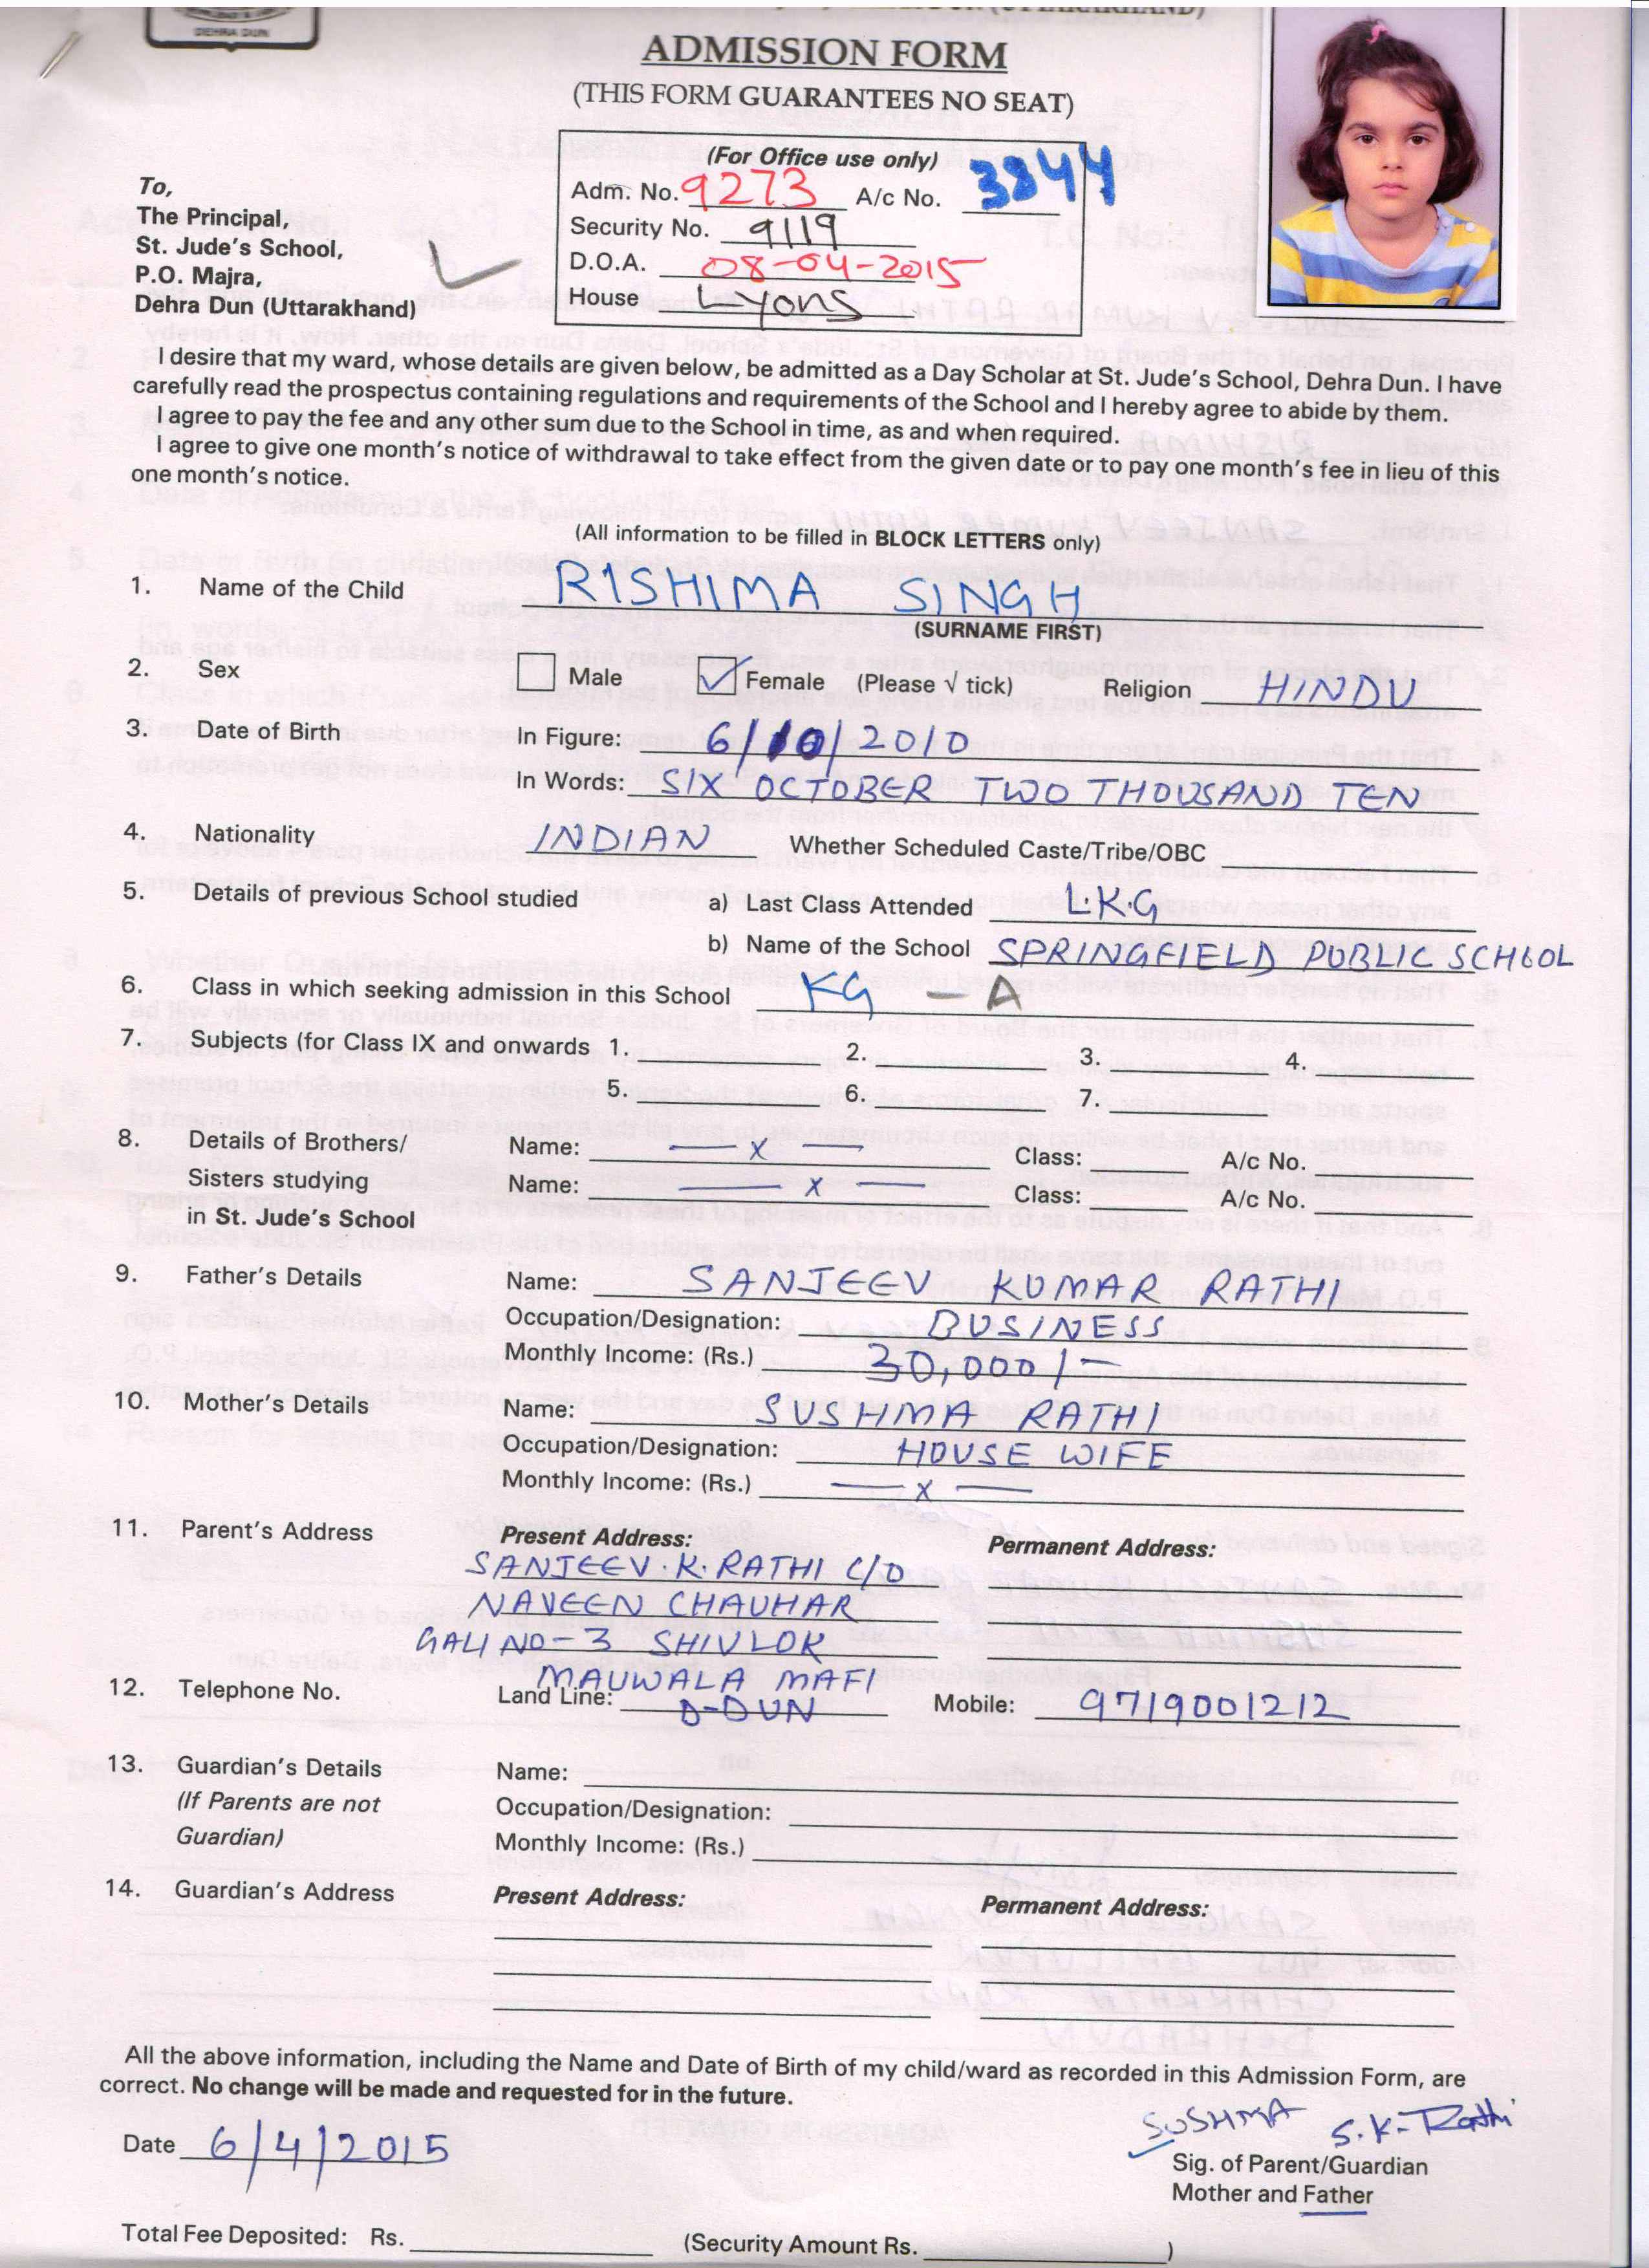 DEHRA DUN
ADMISSION FORM
(THIS FORM GUARANTEES NO SEAT)
(For Office use only)
Adm. No. 9273 A/c No. 3844
Security No. 9119
D.O.A. 08-04-2015
House Lyons
To,
The Principal,
St. Jude's School,
P.O. Majra,
Dehra Dun (Uttarakhand)
I desire that my ward, whose details are given below, be admitted as a Day Scholar at St. Jude's School, Dehra Dun. I have
carefully read the prospectus containing regulations and requirements of the School and I hereby agree to abide by them.
I agree to pay the fee and any other sum due to the School in time, as and when required.
I agree to give one month's notice of withdrawal to take effect from the given date or to pay one month's fee in lieu of this
one month's notice.
(All information to be filled in BLOCK LETTERS only)
1. Name of the Child RISHIMA SINGH
(SURNAME FIRST)
2. Sex Male Female (Please √ tick) Religion HINDU
3. Date of Birth In Figure: 6/10/2010
In Words: SIX OCTOBER TWO THOUSAND TEN
4. Nationality INDIAN Whether Scheduled Caste/Tribe/OBC
5. Details of previous School studied a) Last Class Attended L.K.G
b) Name of the School SPRINGFIELD PUBLIC SCHOOL
6. Class in which seeking admission in this School KG - A
7. Subjects (for Class IX and onwards 1. 2. 3. 4.
5. 6. 7.
8. Details of Brothers/ Name: — x — Class: A/c No.
Sisters studying Name: — x — Class: A/c No.
in St. Jude's School
9. Father's Details Name: SANJEEV KUMAR RATHI
Occupation/Designation: BUSINESS
Monthly Income: (Rs.) 30,000/-
10. Mother's Details Name: SUSHMA RATHI
Occupation/Designation: HOUSE WIFE
Monthly Income: (Rs.) — x —
11. Parent's Address Present Address: Permanent Address:
SANJEEV.K.RATHI C/O
NAVEEN CHAUHAR
GALI NO-3 SHIVLOK
MAUWALA MAFI
12. Telephone No. Land Line: D-DUN Mobile: 9719001212
13. Guardian's Details Name:
(If Parents are not Occupation/Designation:
Guardian) Monthly Income: (Rs.)
14. Guardian's Address Present Address: Permanent Address:
All the above information, including the Name and Date of Birth of my child/ward as recorded in this Admission Form, are
correct. No change will be made and requested for in the future.
SUSHMA S.K. Rathi
Date 6/4/2015
Sig. of Parent/Guardian
Mother and Father
Total Fee Deposited: Rs. (Security Amount Rs. )